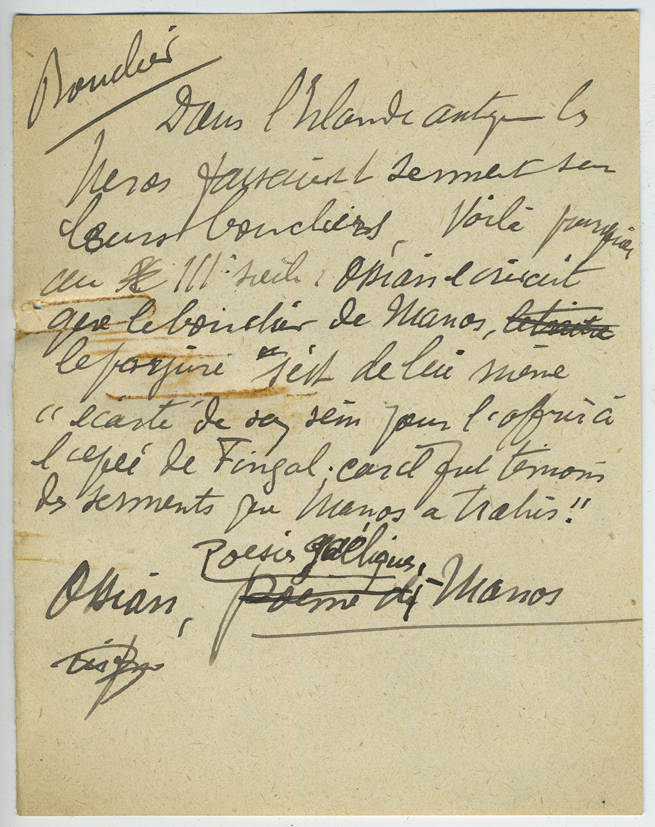 Bouclier
Dans l'Irlande antique les
heros faisaient serment sur
leurs boucliers, Voilà pourquoi
au III° siècle Ossian ecrivait
que le bouclier de Manos, le traitre
le parjure "s'est de lui même
"ecarté de son sein pour l'offrir à
l'épée de Fingal; car il fut temoin
des serments que Manos a trahis!!
Poesies gaéliques,
Ossian, Poeme de Manos